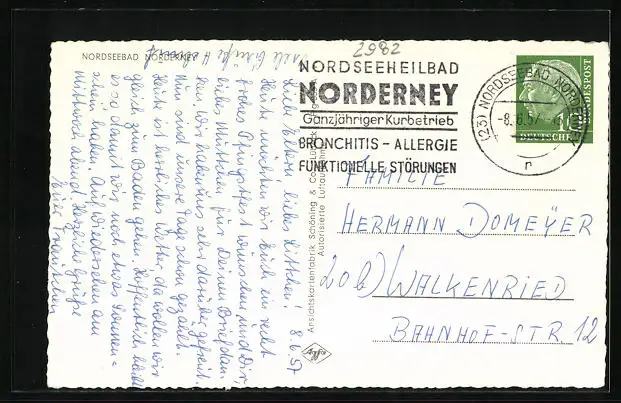 NORDSEEBAD NORDERNEY
2982
NORDSEEHEILBAD
NORDERNEY
Ganzjähriger Kurbetrieb
BRONCHITIS - ALLERGIE
FUNKTIONELLE STÖRUNGEN
(23) NORDSEEBAD NORDERNEY
-8.6.57
r
10
DEUTSCHE BUNDESPOST
FAMILIE
HERMANN DOMEYER
20b) WALKENRIED
BAHNHOF-STR 12
Ansichtskartenfabrik Schöning & Co
Autorisierte Luftaufnahme
Agfa
8.6.57
Liebe Eltern, liebes Muttchen!
Heute möchten wir Euch ein recht
frohes Pfingstfest wünschen und Dir,
liebes Muttchen für Deinen Brief danken
wir haben uns sehr darüber gefreut.
Nun sind unsere Tage schon gezählt.
Heute ist herrliches Wetter, da wollen wir
gleich zum Baden gehen. Hoffentlich bleibt
es so damit wir noch etwas Sonnen-
schein haben. Auf Wiedersehen am
Mittwoch abend. Herzliche Grüße
Eure